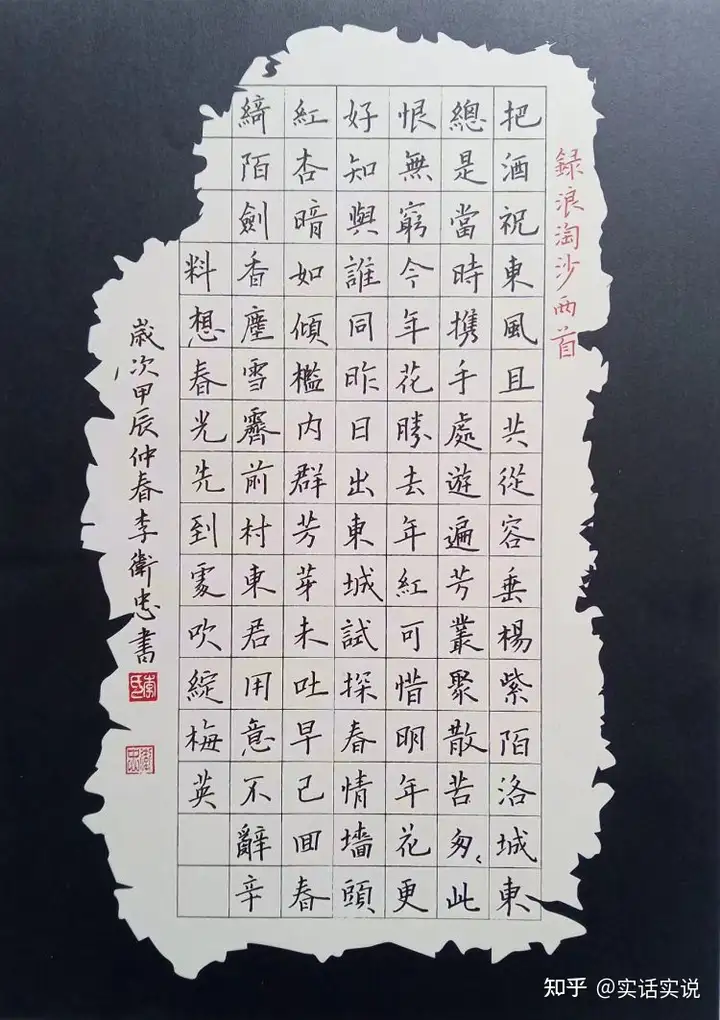 録浪淘沙两首
把酒祝東風且共從容垂楊紫陌洛城東
總是當時携手處遊遍芳叢聚散苦匆〻此
恨無窮今年花勝去年紅可惜明年花更
好知與誰同昨日出東城試探春情墻頭
紅杏暗如傾檻内群芳芽未吐早已囬春
綺陌劍香塵雪霽前村東君用意不辭辛
料想春光先到處吹綻梅英
歲次甲辰仲春李衛忠書
李氏
衛忠
知乎 @实话实说